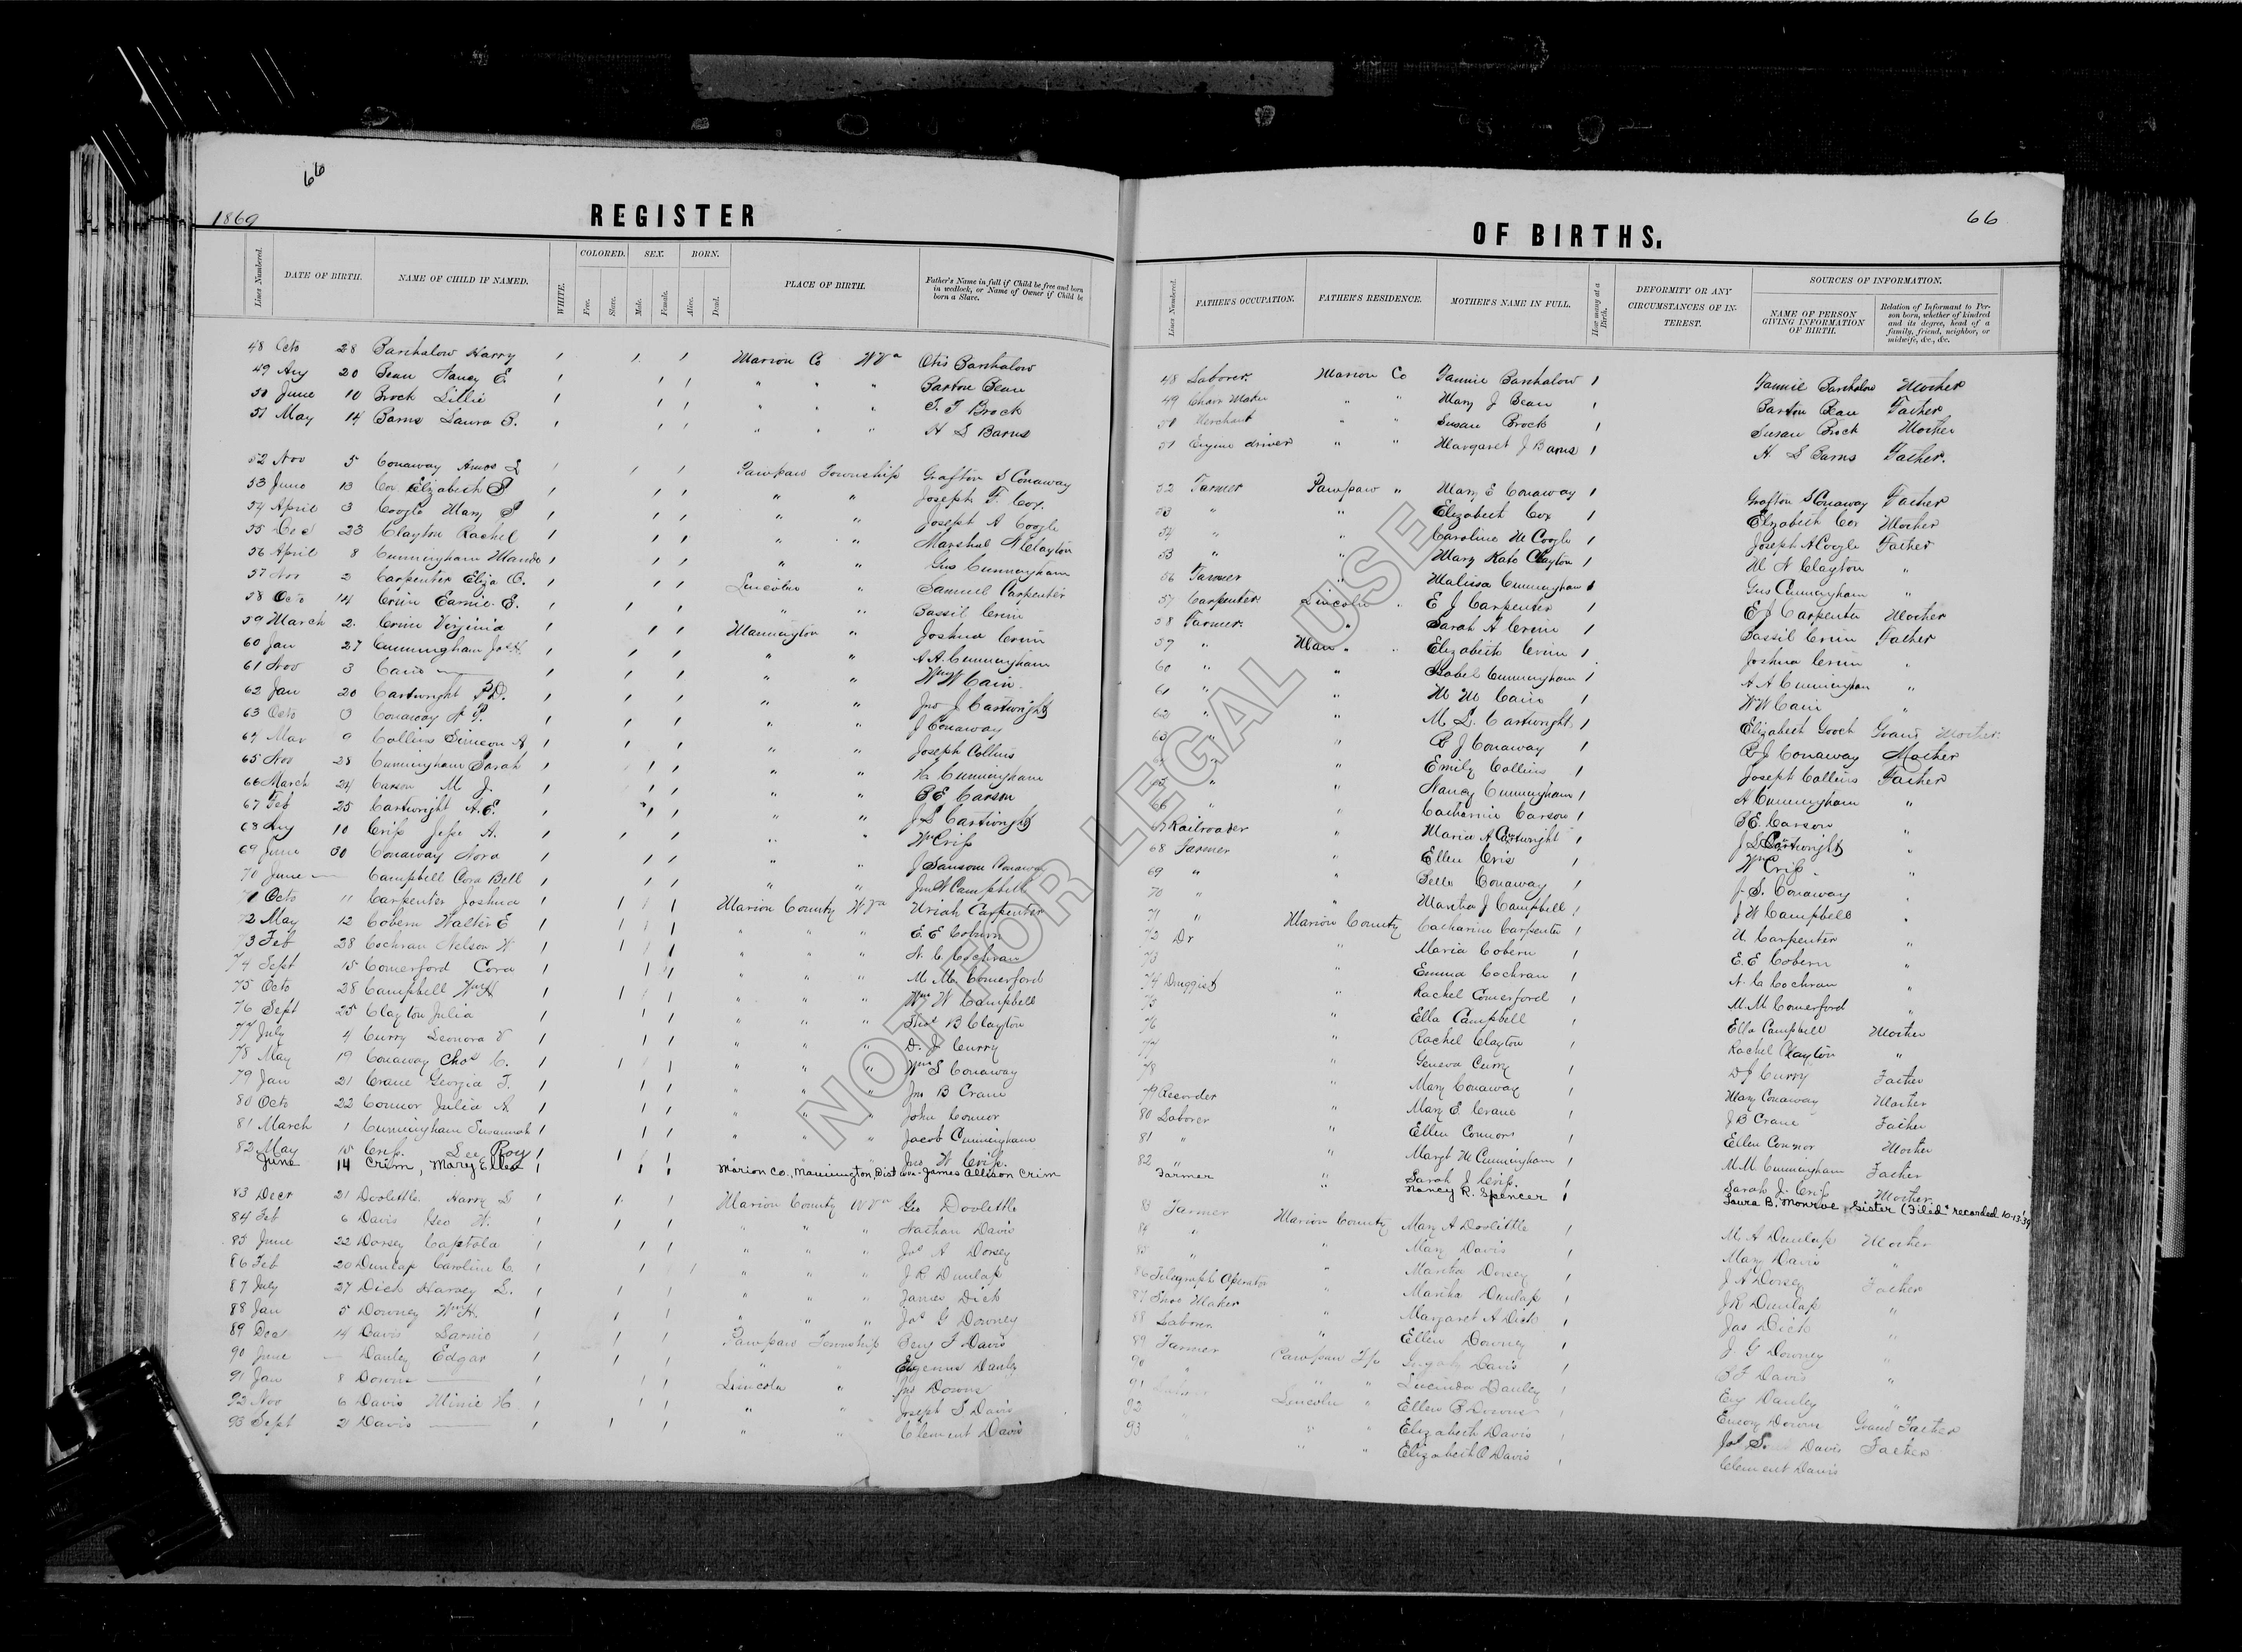 66
1869
REGISTER
Lines Numbered. DATE OF BIRTH. NAME OF CHILD IF NAMED. WHITE. COLORED. Free. Slave. SEX. Male. Female. BORN. Alive. Dead. PLACE OF BIRTH. Father's Name in full if Child be free and born in wedlock, or Name of Owner if Child be born a Slave.
48 Octo 28 Barshalow Harry Marion Co W Va Otis Barshalow
49 Aug 20 Bean Nancy E. " " " Barton Bean
50 June 10 Brock Lillie " " " T. F Brock
51 May 14 Barns Laura B. " " " H S Barns
52 Nov 5 Conaway Amos L Pawpaw Township Grafton S Conaway
53 June 13 Cox Elizabeth S " " Joseph F. Cox.
54 April 3 Coogle Mary S " " Joseph A Coogle
55 Dec 23 Clayton Rachel " " Marshal N Clayton
56 April 8 Cunningham Manda " " Gus Cunningham
57 Nov 2 Carpenter Eliza C. Lincoln " Samuel Carpenter
58 Octo 14 Crim E. " " Bassil Crim
59 March 2. Crim Virginia Mannington " Joshua Crim
60 Jan 27 Cunningham Jas H. " " A A. Cunningham
61 Nov 3 Cain — " " Wm W Cain.
62 Jan 20 Cartwright P.D. " " Jno J Cartwright
63 Octo Conaway N P. " " J Conaway
64 Mar 9 Collins Simeon A " " Joseph Collins
65 Nov 28 Cunningham Sarah " " N Cunningham
66 March 24 Carson M J. " " B E Carson
67 Feb 25 Cartwright A. E. " " J S Cartwright
68 Aug 10 Crip Jesse A. " " Wm Crip
69 June 30 Conaway Nora " " J Sansom Conaway
70 June — Campbell Cora Bell " " Jno W Campbell
71 Octo 11 Carpenter Joshua Marion County W Va Uriah Carpenter
72 May 12 Cobern Walter E " " " E. E Coburn
73 Feb 28 Cochran Nelson W " " " N. C Cochran
74 Sept 15 Comerford Cora " " " M. M. Comerford
75 Octo 28 Campbell Wm H " " " Wm W Campbell
76 Sept 25 Clayton Julia " " " Thos B Clayton
77 July 4 Curry Leonora V " " " D. J Curry
78 May 19 Conaway Chas C. " " " Wm S Conaway
79 Jan 21 Crane Georgia T. " " " Jno B Crane
80 Octo 22 Connor Julia A. " " " John Connor
81 March 1 Cunningham Susannah " " " Jacob Cunningham
82 May 15 Crip. Lee Roy " " " Jno W Crip.
June 14 Crim, Mary Ellen Marion Co., Mannington, Dist James Allison Crim
83 Decr 21 Doolittle Harry S Marion County W Va Geo Doolittle
84 Feb 6 Davis Geo W. " " " Nathan Davis
85 June 22 Dorsey Captola " " " Jas A Dorsey
86 Feb 20 Dunlap Caroline C. " " " J R Dunlap
87 July 27 Dick Harvey L. " " " James Dick
88 Jan 5 Downey Wm H. " " " Jas G Downey
89 Dec 14 Davis Pawpaw Township Benj F Davis
90 June — Danley Edgar " " Eugenus Danley
91 Jan 8 Downs — Lincoln " Jno Downs
92 Nov 6 Davis Minie H. " " Joseph S Davis
93 Sept 21 Davis — " " Clement Davis
66
OF BIRTHS.
Lines Numbered. FATHER'S OCCUPATION. FATHER'S RESIDENCE. MOTHER'S NAME IN FULL. How many at a Birth. DEFORMITY OR ANY CIRCUMSTANCES OF INTEREST. SOURCES OF INFORMATION. NAME OF PERSON GIVING INFORMATION OF BIRTH. Relation of Informant to Person born, whether of kindred and its degree, head of a family, friend, neighbor, or midwife, &c., &c.
48 Laborer. Marion Co Fannie Barshalow 1 Fannie Barshalow Mother
49 Chair Maker " " Mary J Bean 1 Barton Bean Father
50 Merchant " " Susan Brock 1 Susan Brock Mother
51 Engine driver " " Margaret J Barns 1 H. S Barns Father.
52 Farmer Pawpaw " Mary E Conaway 1 Grafton S Conaway Father
53 " " Elizabeth Cox 1 Elizabeth Cox Mother
54 " " Caroline M Coogle 1 Joseph A Coogle Father
55 " " Mary Kate Clayton 1 M N Clayton "
56 Farmer " Malissa Cunningham 1 Gus Cunningham "
57 Carpenter Lincoln " E J Carpenter 1 E J Carpenter Mother
58 Farmer. " Sarah A Crim 1 Bassil Crim Father
59 " Man " " Elizabeth Crim 1 Joshua Crim "
60 " " Isabel Cunningham 1 A A Cunningham "
61 " " M M Cain 1 W W Cain "
62 " " M L. Cartwright 1 Elizabeth Gooch Grand Mother.
63 " " R J Conaway 1 R J Conaway Mother
" " Emily Collins 1 Joseph Collins Father
65 " " Nancy Cunningham 1 N Cunningham "
66 " " Catharine Carson 1 B E. Carson "
67 Railroader " Maria A Cartwright 1 J S Cartwright "
68 Farmer " Ellen Cris 1 Wm Crip. "
69 " Belle Conaway 1 J. S. Conaway "
70 " " Martha J Campbell 1 J W Campbell "
71 " Marion County Catharine Carpenter 1 U. Carpenter "
72 Dr " Maria Cobern 1 E. E Cobern "
73 Emma Cochran 1 N. C Cochran "
74 Druggist " Rachel Comerford 1 M. M Comerford "
75 " Ella Campbell 1 Ella Campbell Mother
76 " Rachel Clayton 1 Rachel Clayton "
77 " Geneva Curry 1 D J Curry Father
78 " Mary Conaway 1 Mary Conaway Mother
79 Recorder " Mary E. Crane 1 J B Crane Father
80 Laborer " Ellen Connor 1 Ellen Connor Mother
81 " Margt M Cunningham 1 M. M Cunningham Father
82 " " Sarah J Crip. Sarah J. Crip Mother.
Farmer " Nancy R. Spencer 1 Laura B. Monroe, Sister (Filed & recorded 10-13-'39
83 Farmer Marion County Mary A Doolittle 1 M. A Dunlap Mother
84 " " Mary Davis 1 Mary Davis "
85 " " Martha Dorsey 1 J A Dorsey Father
86 Telegraph Operator " Martha Dunlap 1 J R Dunlap "
87 Shoe Maker " Margaret A Dick 1 Jas Dick "
88 Laborer " Ellen Downey 1 J. G Downey "
89 Farmer Pawpaw Davis 1 B F Davis "
90 " " " Lucinda Danley 1 Eug Danley "
91 Lincoln " Ellen B Downs 1 Downs Grand Father
92 " " Elizabeth Davis 1 Jos S. Davis Father
93 " " Elizabeth Davis 1 Clement Davis
NOT FOR LEGAL USE